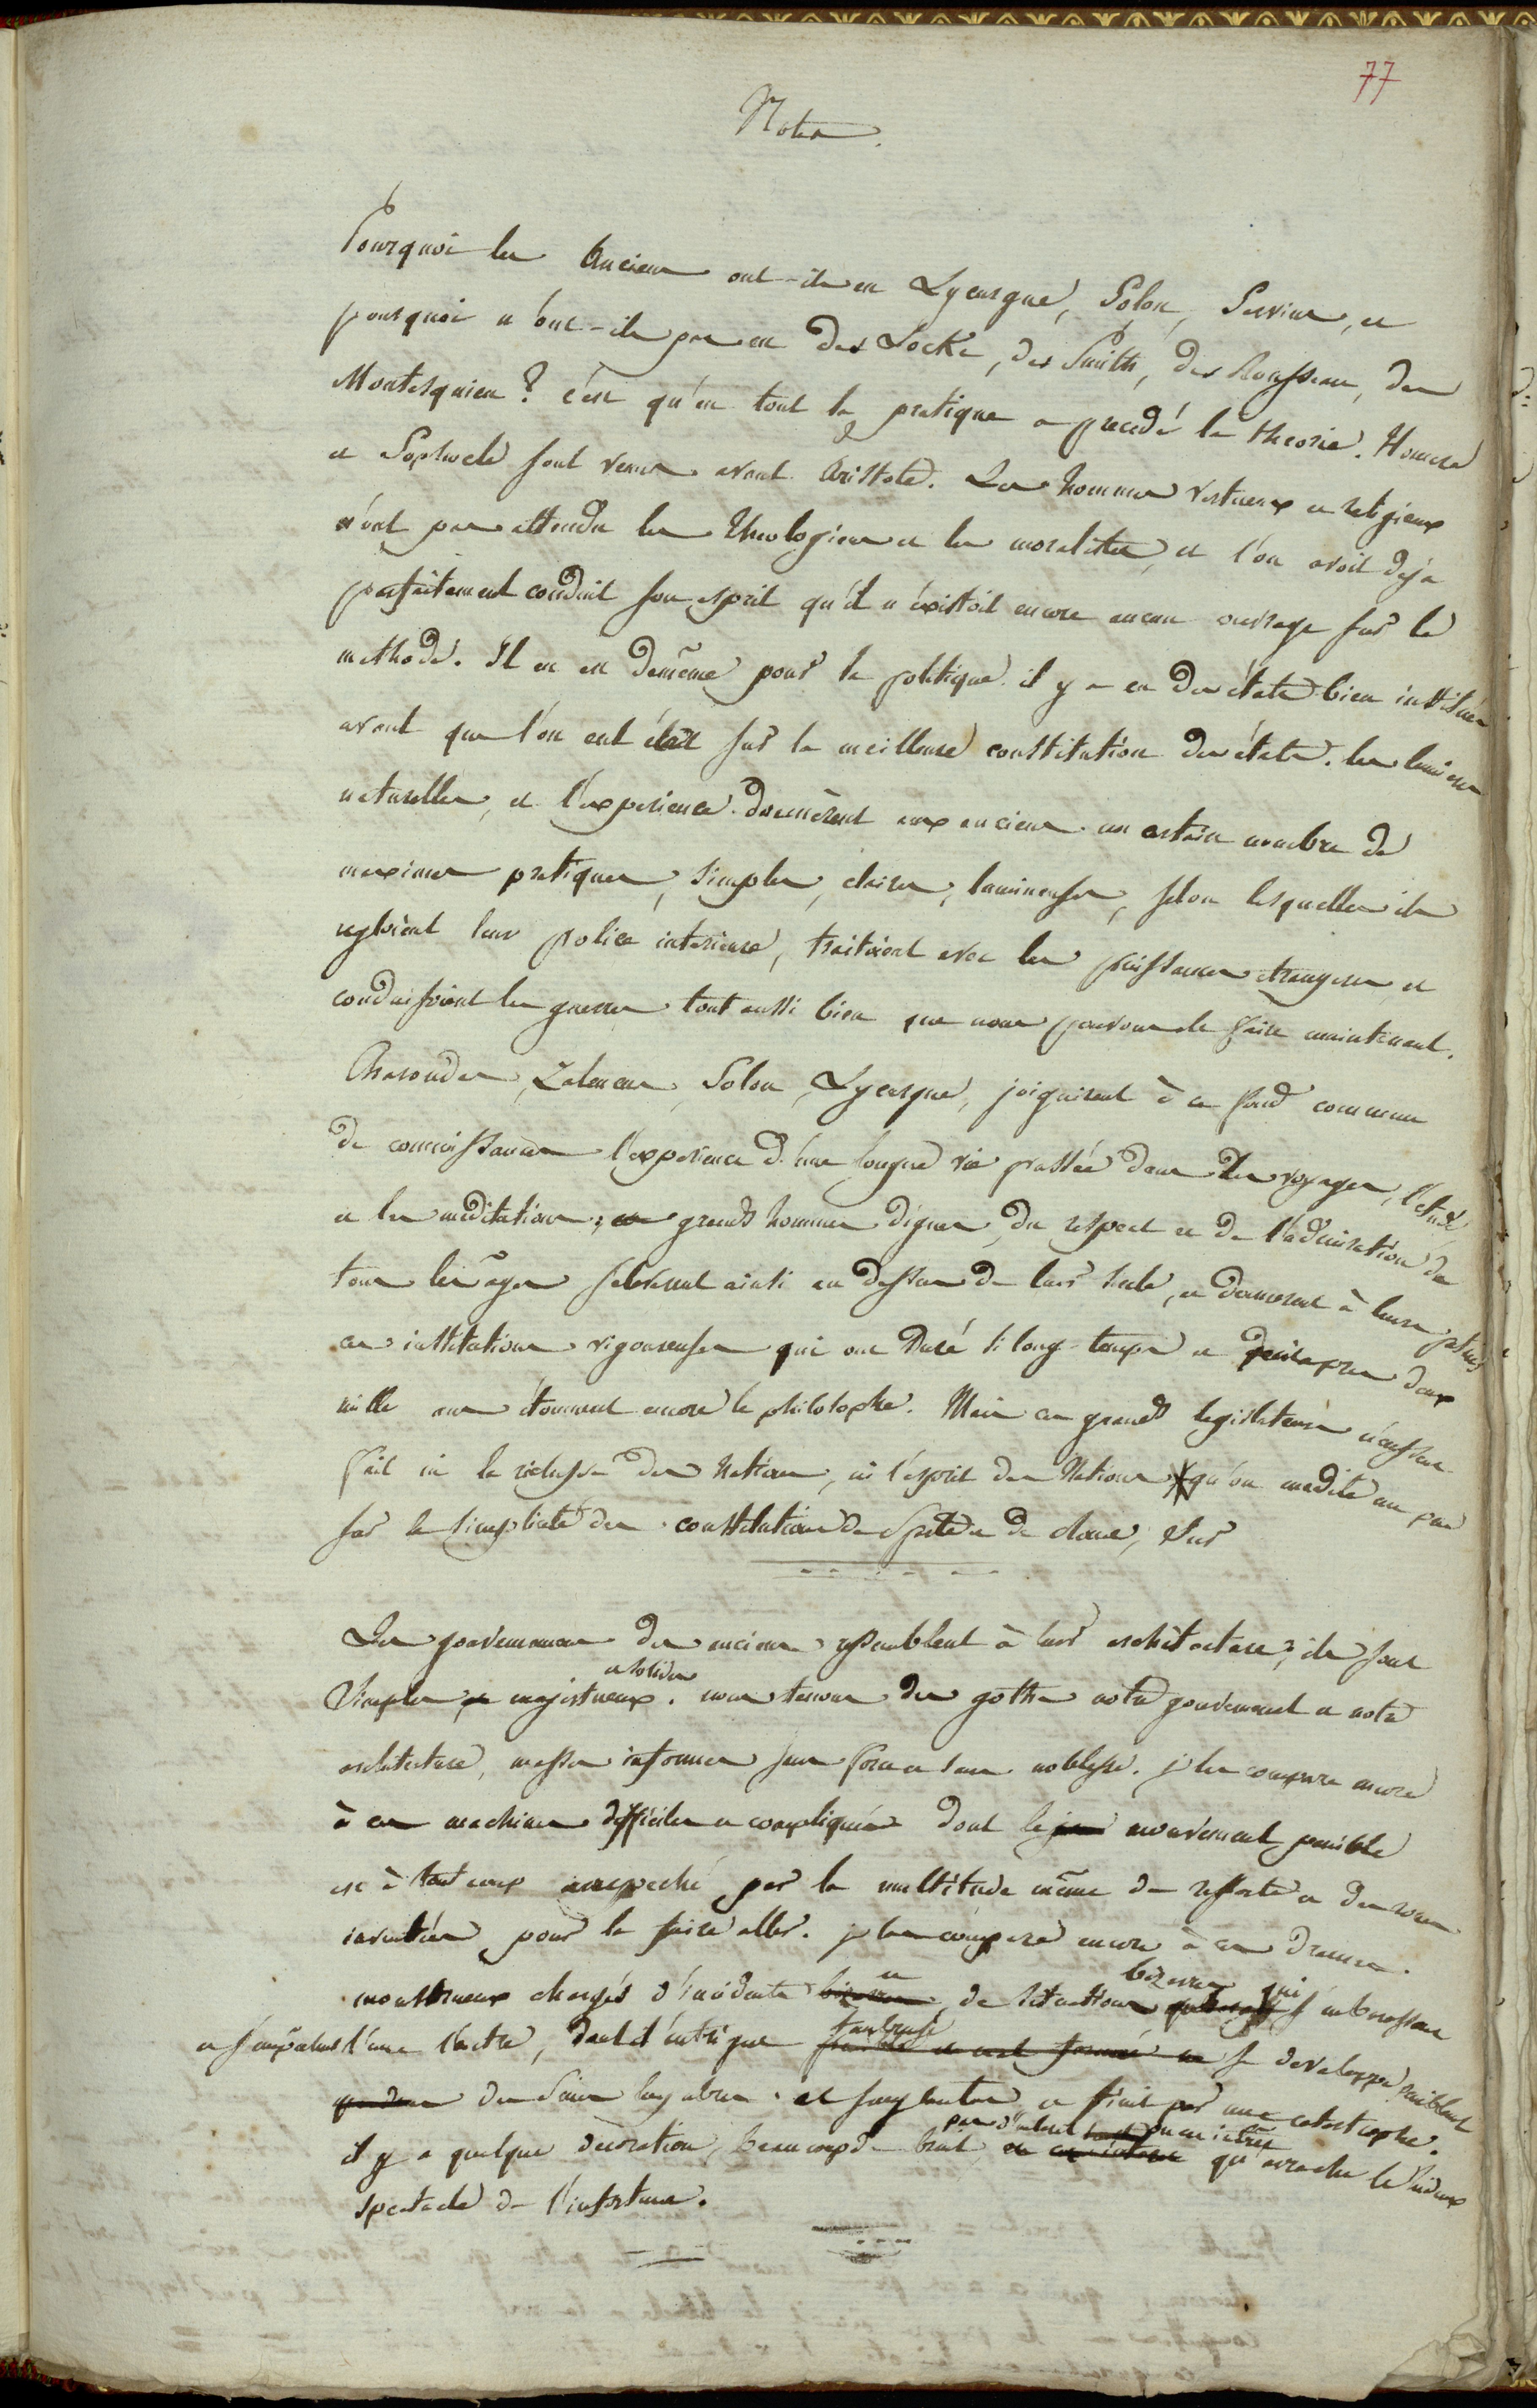 77
Notes.
Pourquoi les Anciens ont-ils eu Lycurgue, Solon, Servius, et
pourquoi n'ont-ils pas eu des Locke, des Smith, des Rousseau, des
Montesquieu ? c'est qu'en tout la pratique a precedé la theorie. Homere
et Sophocle sont venus avant Aristote. Les hommes vertueux et religieux
n'ont pas attendu les theologiens et les moralistes, et l'on avoit deja
parfaitement conduit son esprit qu'il n'existoit encore aucun ouvrage sur la
methode. Il en est demême pour la politique. il y a eu des états bien institués
avant que l'on eut écrit sur la meilleure constitution des états. les lumieres
naturelles, et l'experience donnèrent aux anciens un certain nombre de
maximes pratiques, simples, claires, lumineuses, selon lesquelles ils
regloient leur police interieure, traitoient avec les puissances etrangeres et
conduisoient les guerres tout aussi bien que nous pouvons le faire maintenant.
Charondas, Zaleucus, Solon, Lycurgue, joignirent à ce fond commun
de connoissances l'experience d'une longue vie passée dans les voyages, l'etude
et les meditations; ces grands hommes dignes du respect et de l'admiration de
tous les âges s'eleverent ainsi au dessus de leur siecle, et donnerent à leurs patries
ces institutions vigoureuses qui ont duré si long-temps et qui après deux
mille ans étonnent encore le philosophe. Mais ces grands legislateurs n'eussent
fait ni la richesse des Nations, ni l'esprit des Nations qu'on medite un peu
sur la simplicité des constitutions de Sparte et de Rome, sur
Les gouvernemens des anciens ressemblent à leur architecture; ils sont
simples et majestueux. nous tenons des goths notre gouvernement et notre
et solides
architecture, masses informes sans force et sans noblesse. je les compare encore
à ces machines difficiles et compliquées dont le jeu mouvement penible
est à tout coup empeché par la multitude même de ressorts et de roues
inventées pour la faire aller. je les compare encore à ces drames
monstrueux chargés d'incidents bizarres et de situations bizarres qui s'embrassent
et l'une l'autre, dont l'intrigue se developpe peniblement
des Scenes lugubres et sanglantes et finit par une catastrophe.
il y a quelque decoration, beaucoup de bruit, qu'arrache le hideux
spectacle de l'infortune.